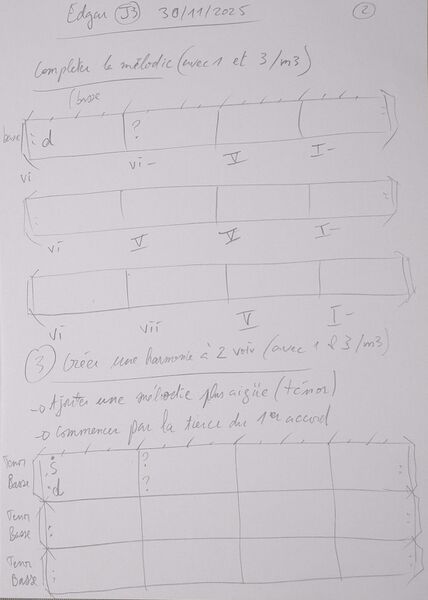 Edgar J3 30/11/2025 2
Completer la mélodie (avec 1 et 3/m3)
basse
basse : d ? :
vi vi- V I-
: :
vi V V I-
vi vii V I-
3 Créer une harmonie à 2 voix (avec 1 & 3/m3)
→ Ajouter une mélodie plus aigüe (ténor)
→ Commencer par la tierce du 1er accord
Tenor : s ? :
Basse : d ? :
Tenor
Basse
Tenor
Basse